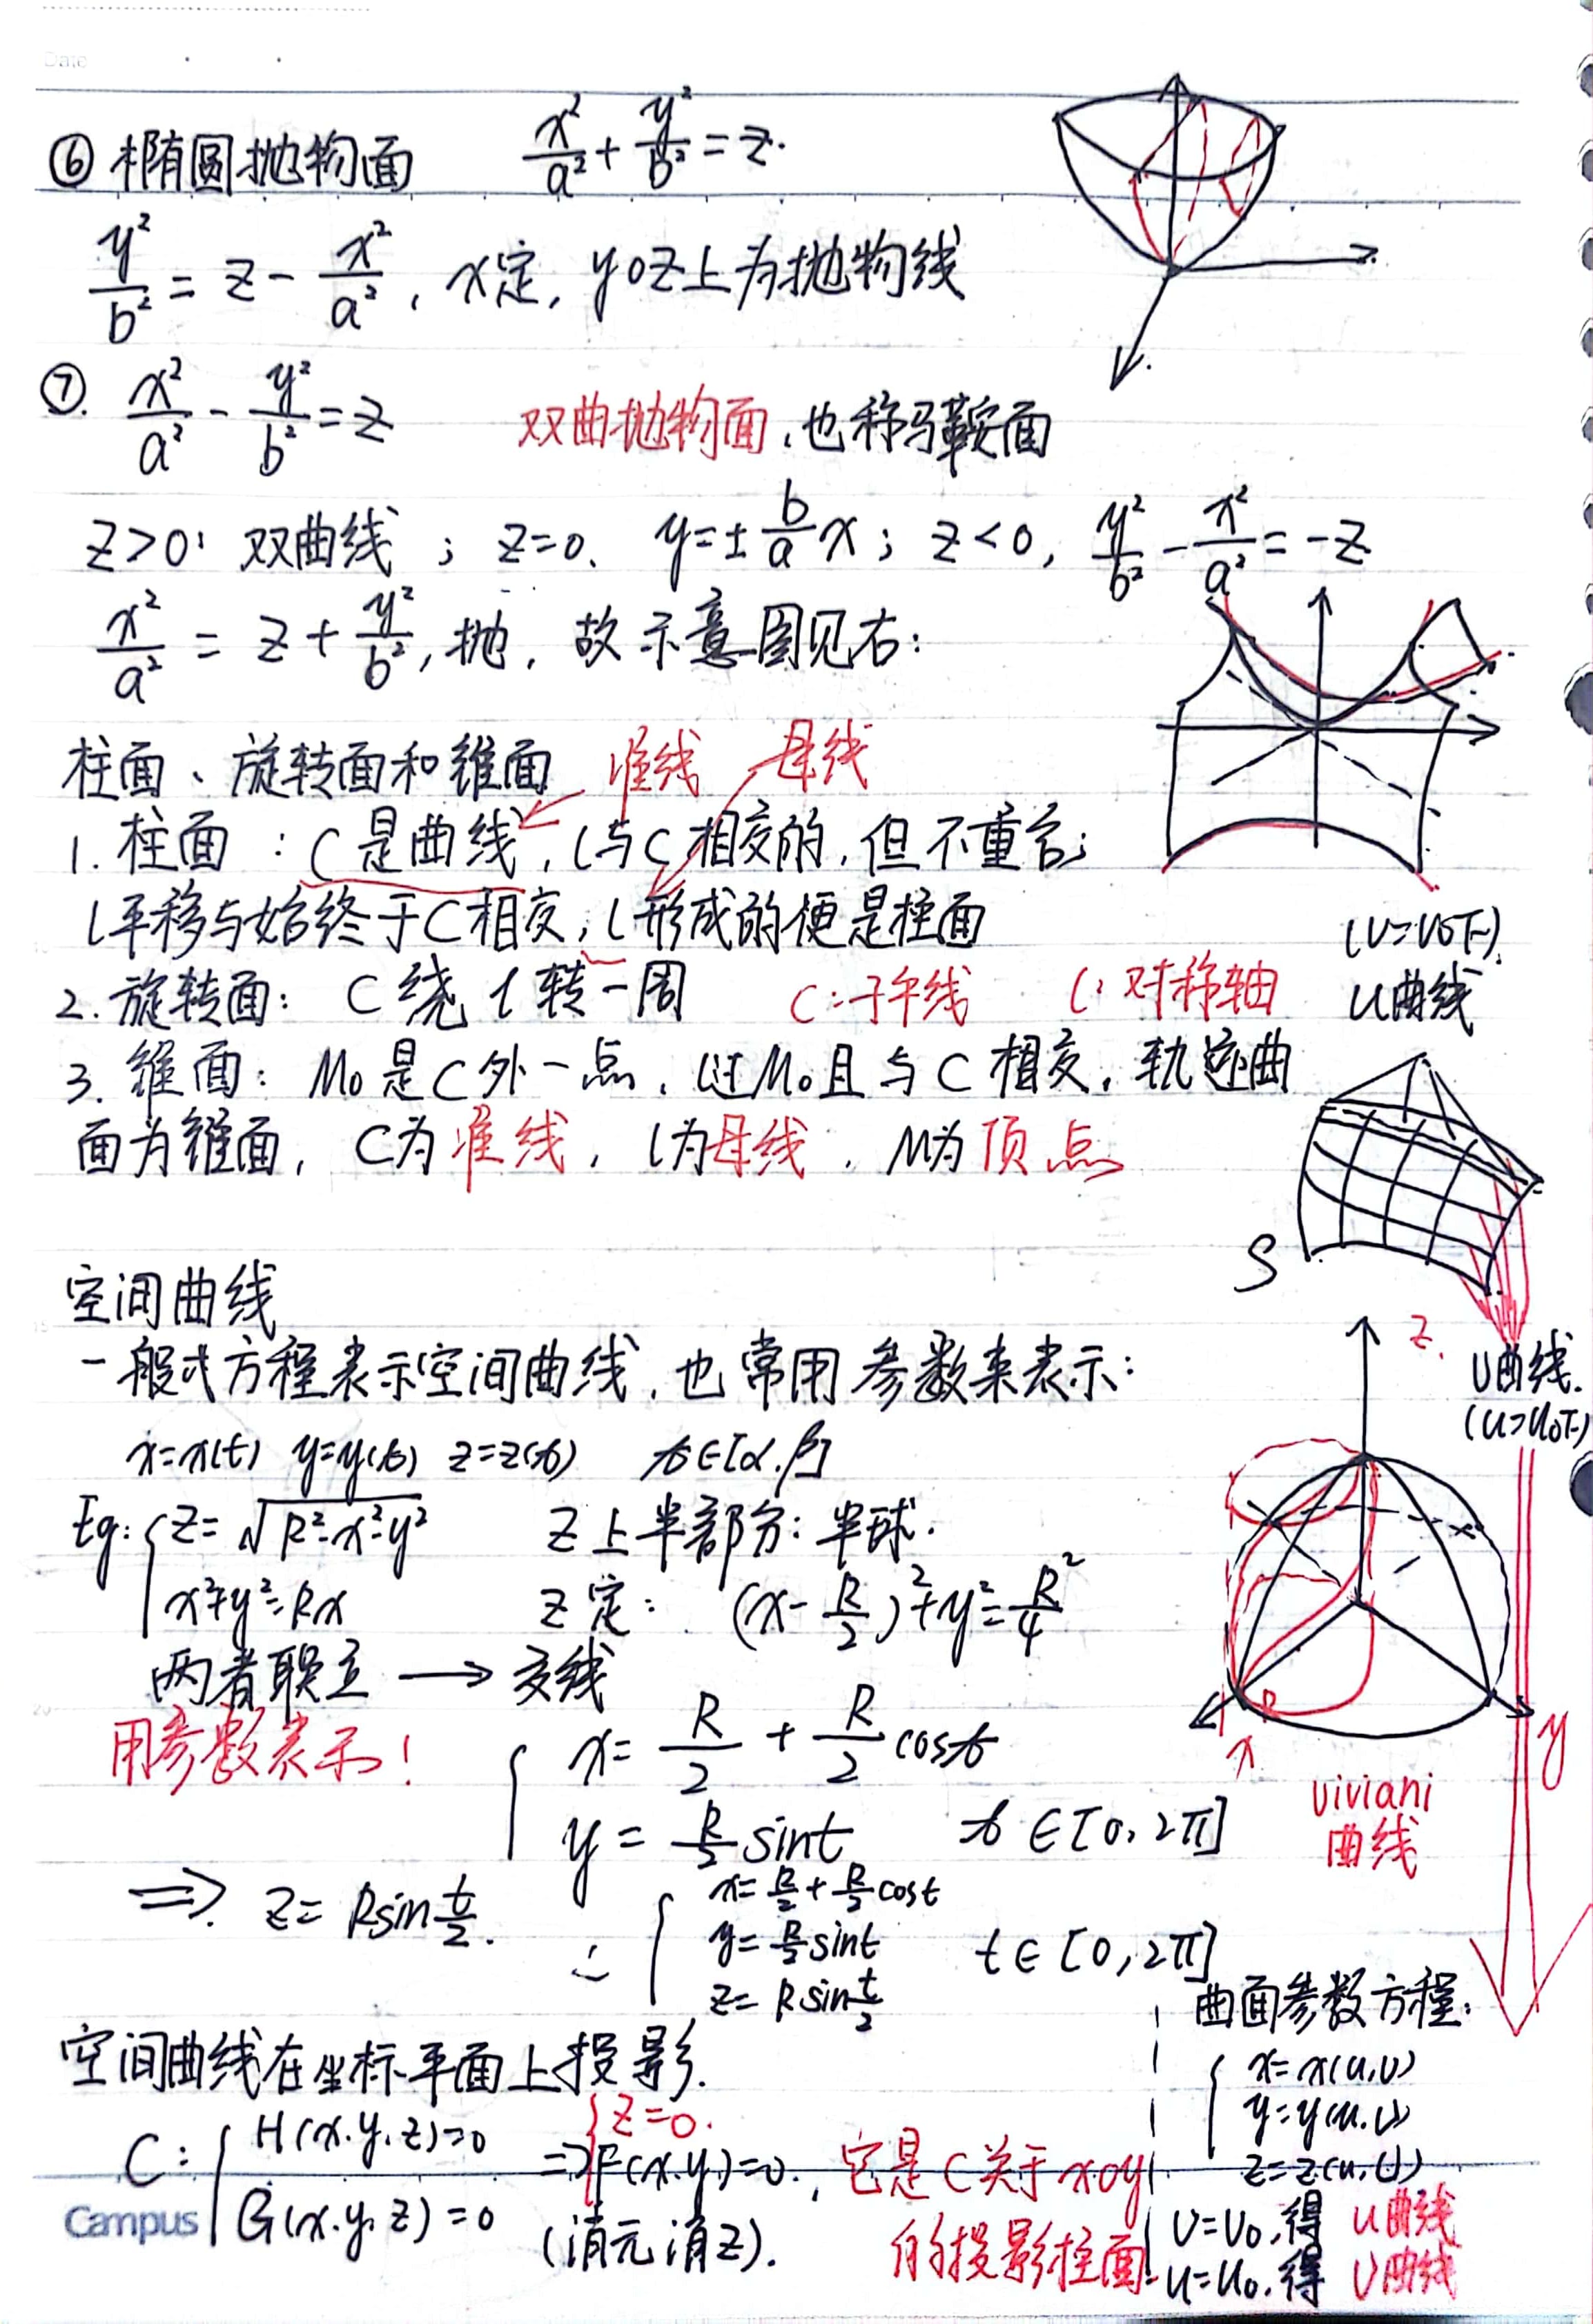 Date
⑥ 椭圆抛物面 x²/a² + y²/b² = z.
y²/b² = z - x²/a², x定, yoz上为抛物线
⑦. x²/a² - y²/b² = z 双曲抛物面, 也称马鞍面
z>0: 双曲线; z=0. y=±b/a x; z<0, y²/b² - x²/a² = -z
x²/a² = z + y²/b², 抛, 故示意图见右:
柱面、旋转面和锥面 准线 母线
1. 柱面: C是曲线, l与C相交的, 但不重合;
l平移与始终于C相交; l形成的便是柱面
2. 旋转面: C绕l转一周 C:子午线 l:对称轴
3. 锥面: M₀是C外一点, l过M₀且与C相交, 轨迹曲
面为锥面, C为准线, l为母线, M为顶点
(v=v₀下)
u曲线
S
空间曲线
一般式方程表示空间曲线, 也常用参数来表示:
x=x(t) y=y(t) z=z(t) t∈[α.β]
Eg: { z=√(R²-x²-y²) z上半部分: 半球.
x²+y²=Rx z定: (x-R/2)²+y²=R²/4
两者联立 → 交线
用参数表示!
{ x= R/2 + R/2 cost
y = R/2 sint t∈[0, 2π]
⇒ z= Rsin t/2.
∴ { x=R/2+R/2cost
y=R/2sint t∈[0, 2π]
z=Rsin t/2
z.
v曲线.
(u=u₀下)
x
R
y
viviani
曲线
空间曲线在坐标平面上投影.
C: { H(x.y.z)=0
G(x.y.z)=0
⇒ { z=0.
F(x.y)=0. , 它是C关于xoy
(消元消z). 的投影柱面.
曲面参数方程:
{ x=x(u,v)
y=y(u.v)
z=z(u,v)
v=v₀, 得 u曲线
u=u₀, 得 v曲线
Campus